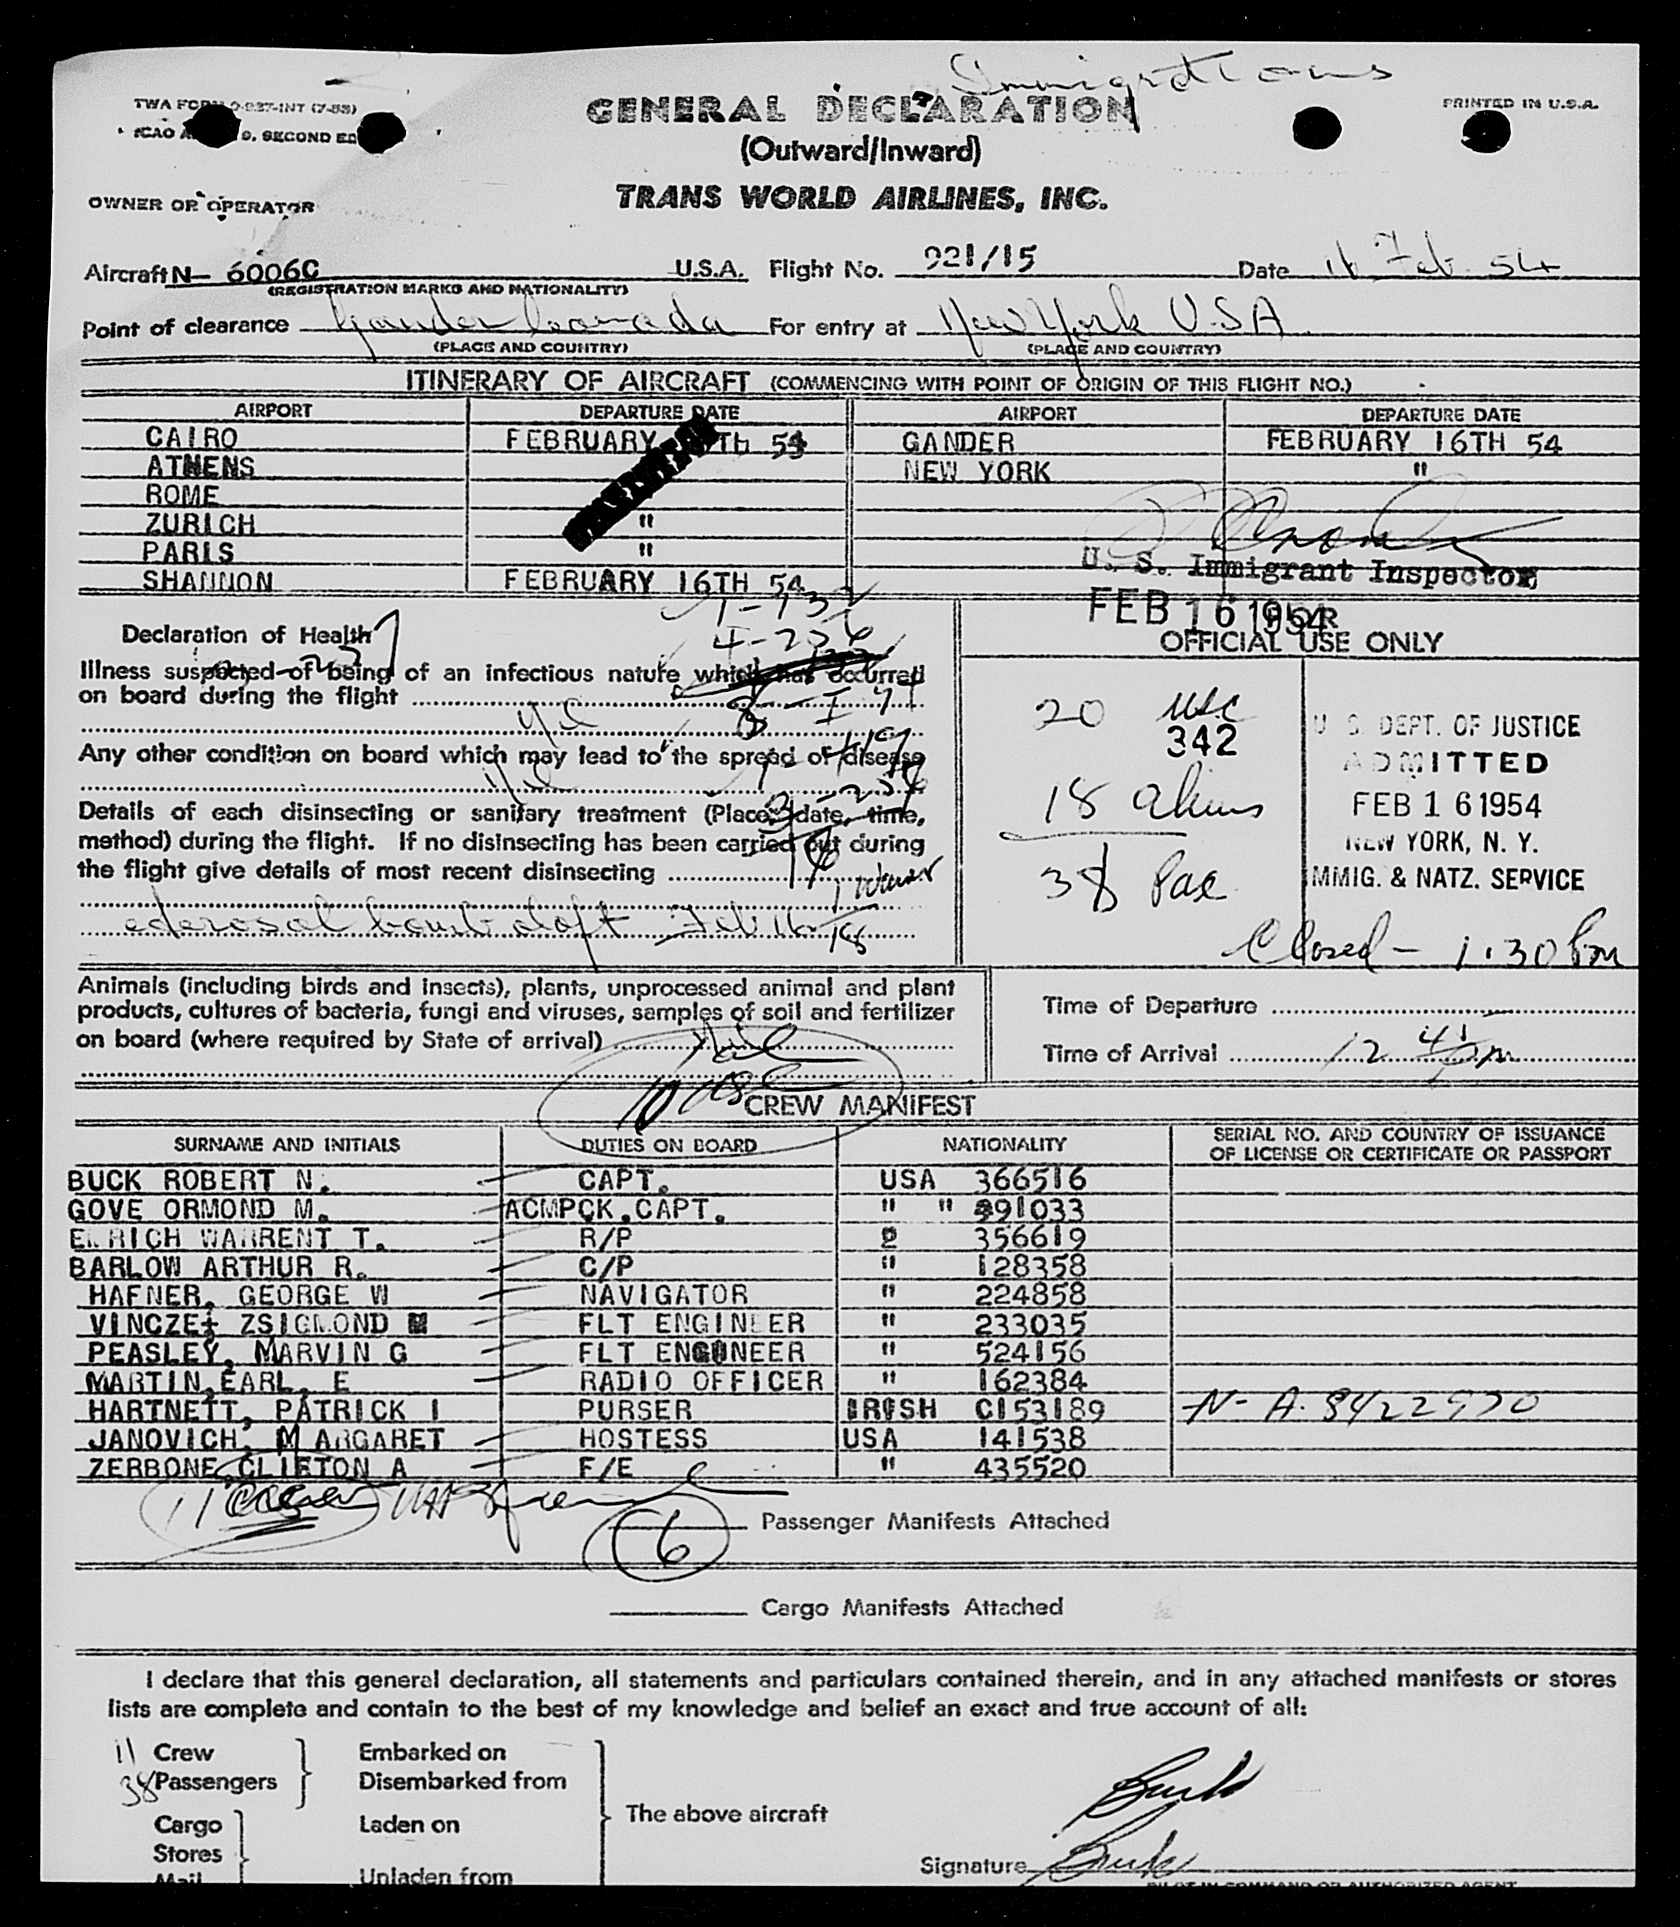 Immigrations
TWA FORM 0-937-INT (7-53)
GENERAL DECLARATION
PRINTED IN U.S.A.
ICAO 9, SECOND ED
(Outward/Inward)
OWNER OR OPERATOR
TRANS WORLD AIRLINES, INC.
Aircraft N- 6006C U.S.A. Flight No. 921/15 Date 16 Feb. 54
(REGISTRATION MARKS AND NATIONALITY)
Point of clearance Gander Canada For entry at New York U.S.A.
(PLACE AND COUNTRY) (PLACE AND COUNTRY)
ITINERARY OF AIRCRAFT (COMMENCING WITH POINT OF ORIGIN OF THIS FLIGHT NO.)
AIRPORT DEPARTURE DATE AIRPORT DEPARTURE DATE
CAIRO FEBRUARY TH 54 GANDER FEBRUARY 16TH 54
ATHENS NEW YORK "
ROME
ZURICH "
PARIS "
SHANNON FEBRUARY 16TH 54
U. S. Immigrant Inspector
FEB 16 1954
FOR
OFFICIAL USE ONLY
Declaration of Health
Illness suspected of being of an infectious nature which has occurred
on board during the flight
Nil
Any other condition on board which may lead to the spread of disease
Nil
Details of each disinsecting or sanitary treatment (Place, date, time,
method) during the flight. If no disinsecting has been carried out during
the flight give details of most recent disinsecting
1 Waiver
aerosol bomb aloft Feb 16
18
20 USC
342
18 aliens
38 Pax
U. S. DEPT. OF JUSTICE
ADMITTED
FEB 16 1954
NEW YORK, N. Y.
IMMIG. & NATZ. SERVICE
Closed - 1:30 Pm
Animals (including birds and insects), plants, unprocessed animal and plant
products, cultures of bacteria, fungi and viruses, samples of soil and fertilizer
on board (where required by State of arrival) Nil
Time of Departure
Time of Arrival 12 45 pm
CREW MANIFEST
SURNAME AND INITIALS DUTIES ON BOARD NATIONALITY SERIAL NO. AND COUNTRY OF ISSUANCE
OF LICENSE OR CERTIFICATE OR PASSPORT
BUCK ROBERT N. CAPT. USA 366516
GOVE ORMOND M. ACMPCK.CAPT. " " 391033
EMRICH WARRENT T. R/P 356619
BARLOW ARTHUR R. C/P " 128358
HAFNER, GEORGE W NAVIGATOR " 224858
VINCZE, ZSIGMOND M FLT ENGINEER " 233035
PEASLEY, MARVIN G FLT ENGINEER " 524156
MARTIN, EARL, E RADIO OFFICER " 162384
HARTNETT, PATRICK I PURSER IRISH C153189 N- A. 8422970
JANOVICH, MARGARET HOSTESS USA 141538
ZERBONE, CLIFTON A F/E " 435520
11
6 Passenger Manifests Attached
Cargo Manifests Attached
I declare that this general declaration, all statements and particulars contained therein, and in any attached manifests or stores
lists are complete and contain to the best of my knowledge and belief an exact and true account of all:
11 Crew Embarked on
38 Passengers Disembarked from
Cargo Laden on The above aircraft
Stores
Mail Unladen from
Buck
Signature Buck
PILOT IN COMMAND OR AUTHORIZED AGENT